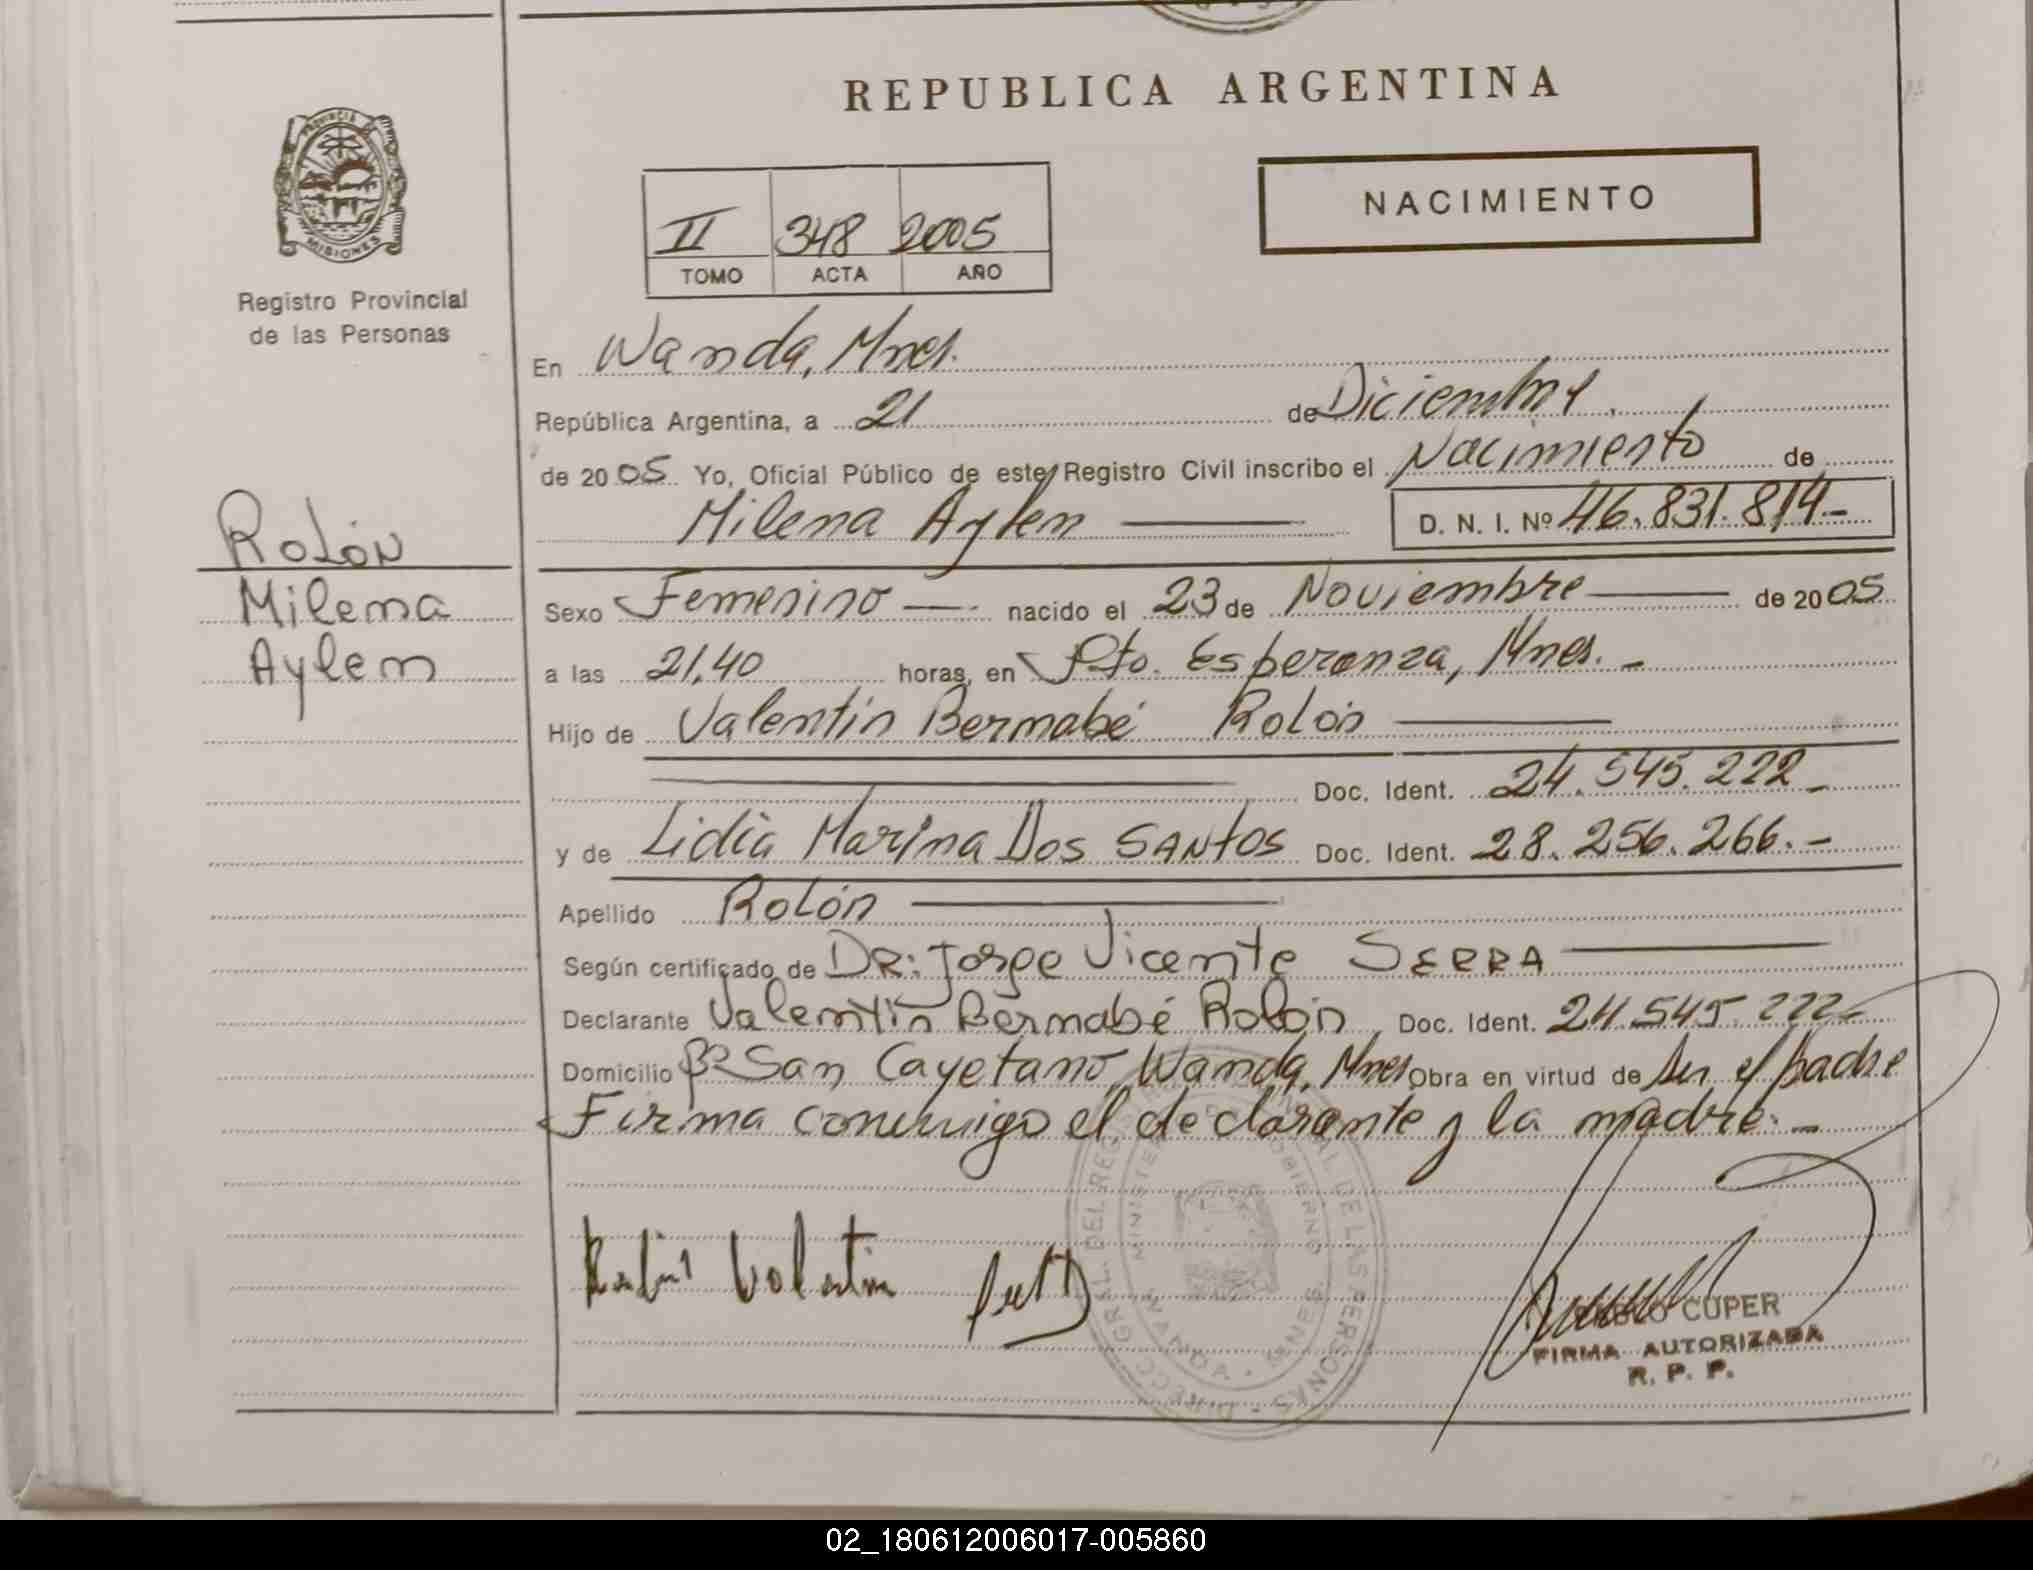 REPUBLICA ARGENTINA
PROVINCIA
MISIONES
Registro Provincial
de las Personas
NACIMIENTO
II 348 2005
TOMO ACTA AÑO
En Wanda, Mnes.
República Argentina, a 21 de Diciembre
de 2005 Yo, Oficial Público de este Registro Civil inscribo el Nacimiento de
Milena Aylen D. N. I. Nº 46.831.814.-
Rolón
Milena
Aylen
Sexo Femenino nacido el 23 de Noviembre de 2005
a las 21,40 horas, en Pto. Esperanza, Mnes. -
Hijo de Valentín Bernabé Rolón
Doc. Ident. 24.545.222 -
y de Lidia Marina Dos SANtOS Doc. Ident. 28.256.266.-
Apellido Rolón
Según certificado de DR: Jorge Vicente SERRA
Declarante Valentín Bernabé Rolón Doc. Ident. 24.545.222-
Domicilio Bº San Cayetano, Wanda, Mnes Obra en virtud de ser el padre
Firma conmigo el declarante y la madre.-
Rolón Valentin
DIRECC. GRAL. DEL REG. DE LAS PERSONAS
MINISTE GOBIERNO
WANDA - MNES.
CUPER
FIRMA AUTORIZADA
R. P. P.
02_180612006017-005860